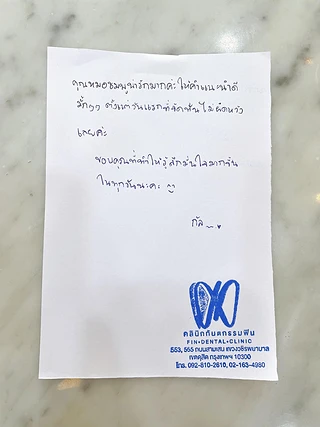 คุณหมอชมพูน่ารักมากค่ะ ให้คำแนะนำดี
มากๆๆ ตั้งแต่วันแรกที่จัดฟัน ไม่ผิดหวัง
เลยค่ะ
ขอบคุณที่ทำให้รู้สึกมั่นใจมากขึ้น
ในทุกวันนะคะ
กัล
คลินิกทันตกรรมฟิน
FIN•DENTAL•CLINIC
553, 555 ถนนสามเสน แขวงวชิรพยาบาล
เขตดุสิต กรุงเทพฯ 10300
โทร. 092-810-2610, 02-163-4980